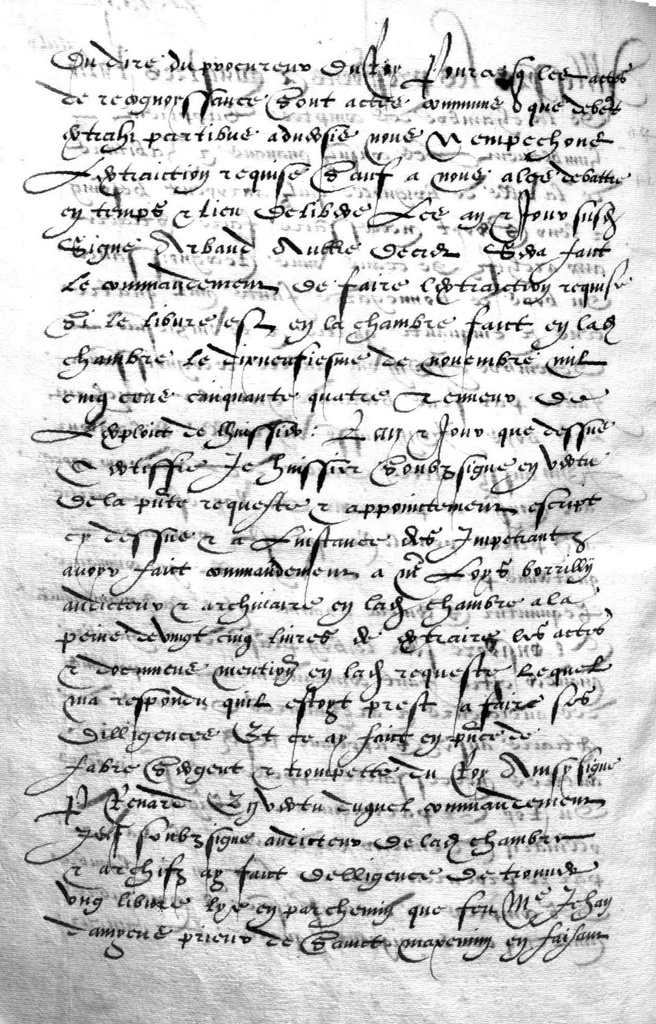 Ou dire du procureur du Roy Pource que les actes
de recognoissance sont actes communs que debent
extrahi partibus adversis nous n empechons
L extraction requise Sauf a nous alors debattre
en temps & lieu deliberé Les an & Jour susd
Signe Arbaud Aultre decret Sera faict
Le commandement de faire l extraction requise
Si le libvre est en la chambre faict en lad
chambre le dixneufiesme de novembre mil
cinq cens cinquante quatre Teneur de
L exploict de Huissier : L an & Jour que dessus
Certiffie Je huissier soubzsigne en vertu
de la pnte requeste & appoinctement escript
cy dessus & a L instance des Impetrantz
avoyr faict commandement a me Loys borrilly
auditeur & archivaire en lad chambre a la
peine de vingt cinq livres de extraire les actes
& documens mention en lad requeste Lequel
ma respondu quil estoyt prest a faire ses
dilligences Et ce ay faict en pnce de
fabre Sergent & trompette du Roy Ainsy signe
P Renard En vertu duquel commandement
Je soubzsigne auditeur de lad chambre
& archifz ay faict delligence de trouver
ung libvre lye en parchemin que feu Me Jehan
damyens prieur de Sainct maxemin en faisant